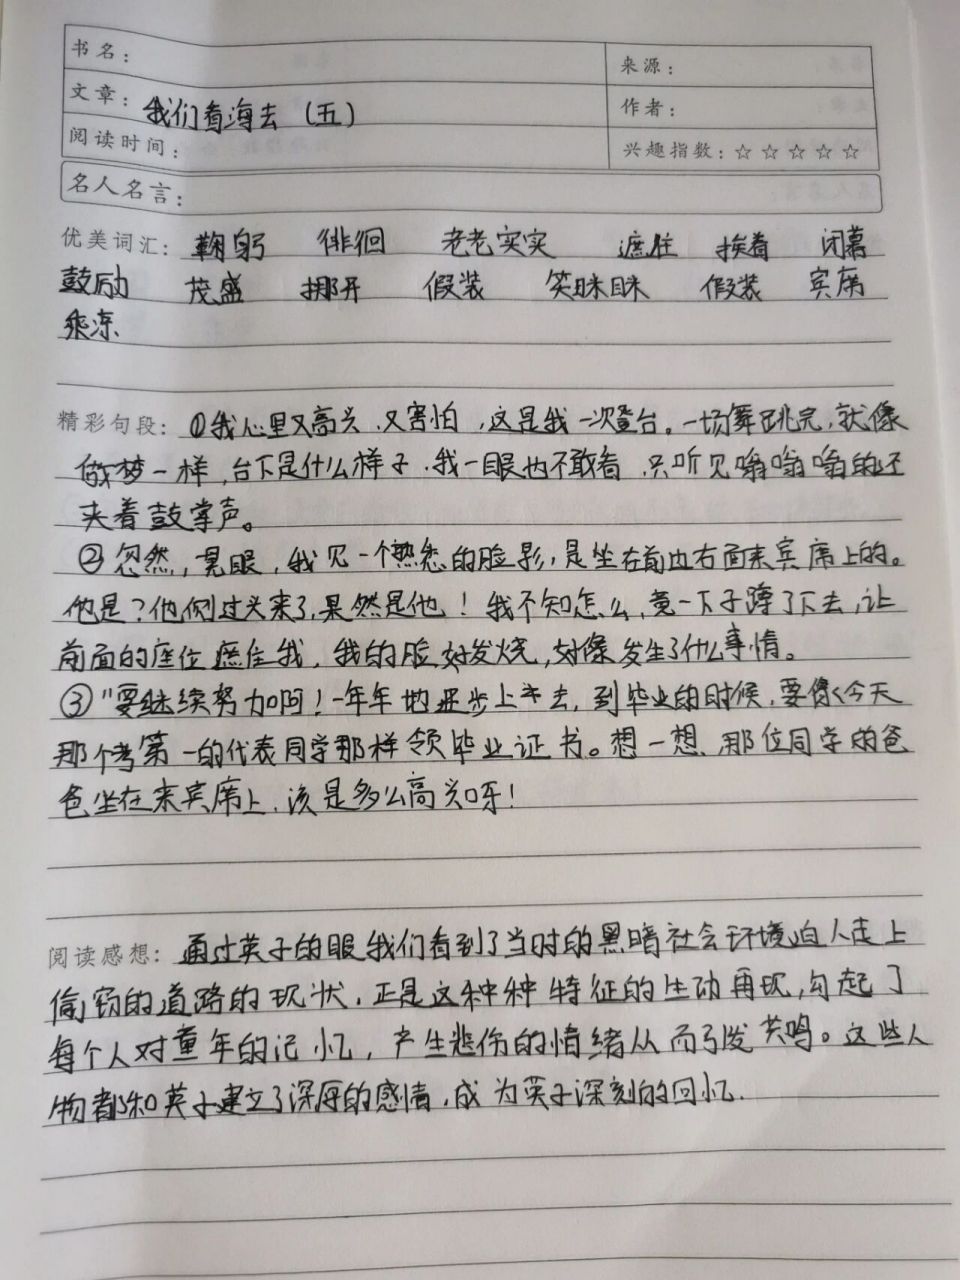 书名：
来源：
文章：我们看海去（五）
作者：
阅读时间：
兴趣指数：☆☆☆☆☆
名人名言：
优美词汇：鞠躬 徘徊 老老实实 遮住 挨着 闭幕
鼓励 茂盛 挪开 假装 笑眯眯 假装 宾席
乘凉
精彩句段：①我心里又高兴、又害怕，这是我一次登台。一场舞跳完，就像
做梦一样，台下是什么样子、我一眼也不敢看，只听见嗡嗡嗡的还
夹着鼓掌声。
②忽然，晃眼，我见一个熟悉的脸影，是坐在前边右面来宾席上的。
他是？他侧过头来了，果然是他！我不知怎么，竟一下子蹲了下去，让
前面的座位遮住我，我的脸好发烧，好像发生了什么事情。
③"要继续努力啊！一年年地进步上去，到毕业的时候，要像今天
那个考第一的代表同学那样领毕业证书。想一想、那位同学的爸
爸坐在来宾席上，该是多么高兴呀！
阅读感想：通过英子的眼我们看到了当时的黑暗社会环境迫人走上
偷窃的道路的现状，正是这种种特征的生动再现，勾起了
每个人对童年的记忆，产生悲伤的情绪从而引发共鸣。这些人
物都和英子建立了深厚的感情，成为英子深刻的回忆.